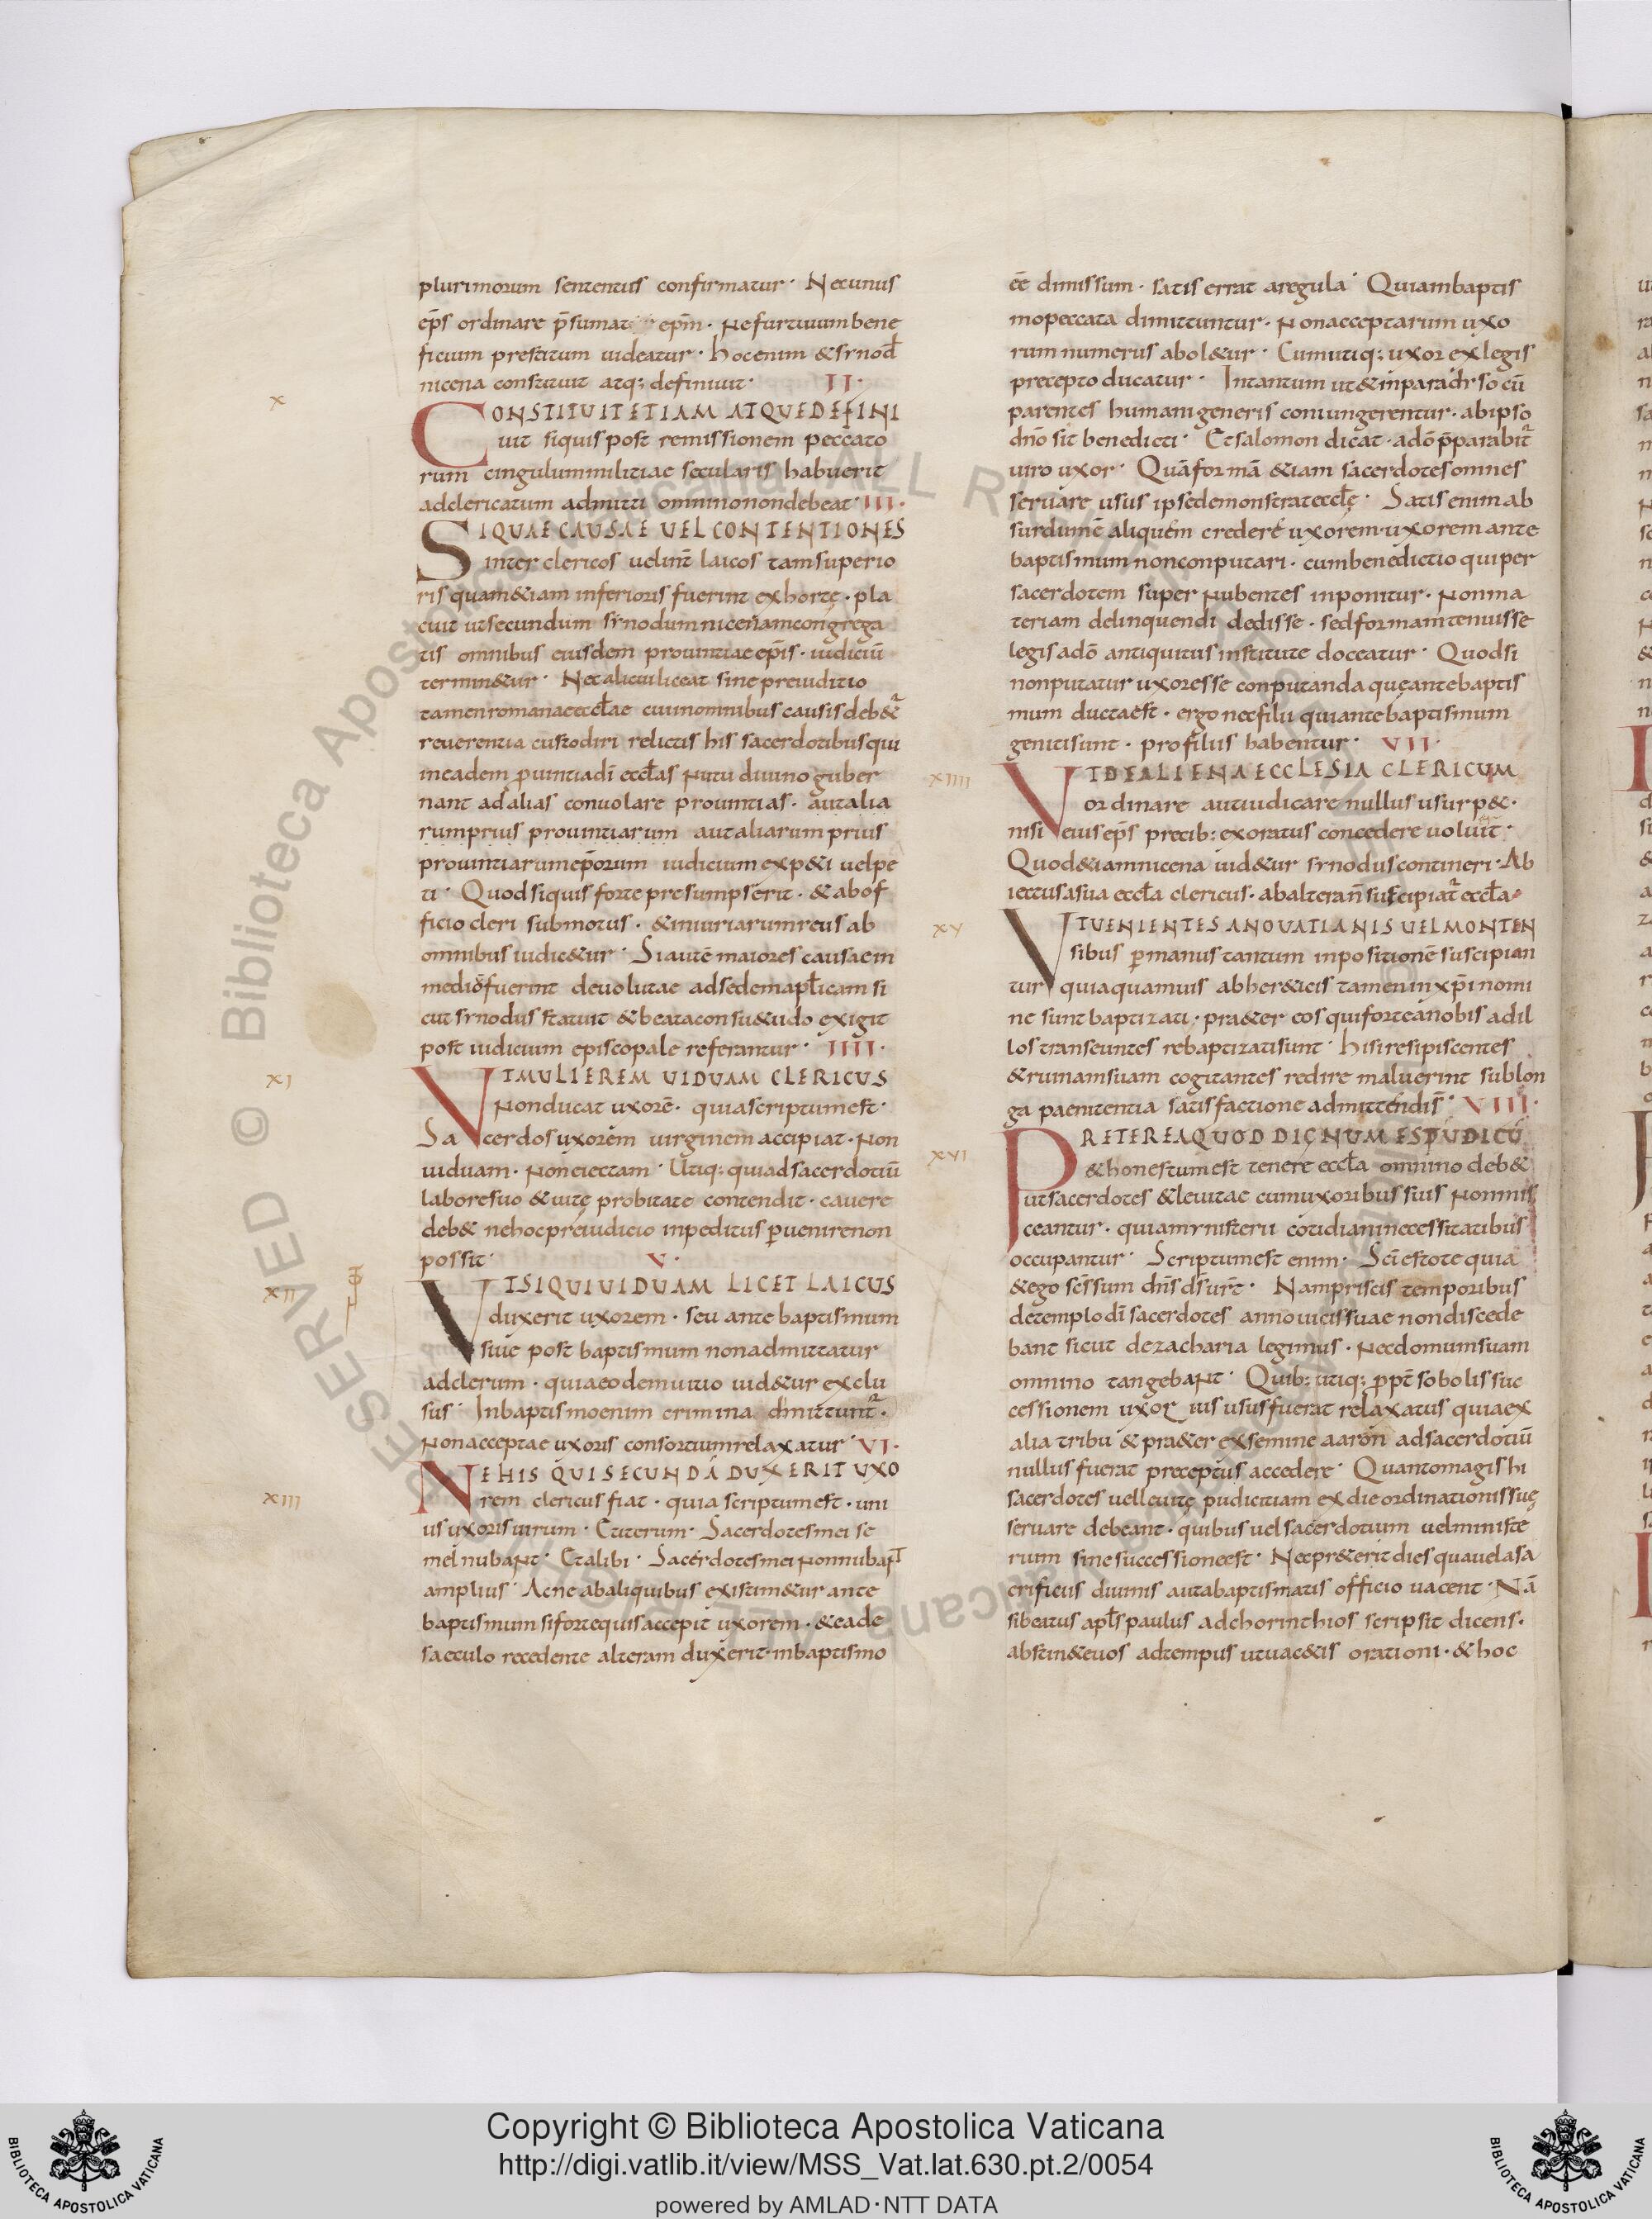 plurimorum sententiis confirmatur · Nec unus
ep̄s ordinare p̄sumat ep̄m · Ne furtiuum bene
ficium prestitum uideatur · hoc enim & synod̄
nicena constituit atq; definiuit · II ·
CONSTITUIT ETIAM ATQUE DEFINI
uit siquis post remissionem peccato
rum cingulum militiae secularis habuerit
ad clericatum admitti omnino non debeat · III ·
SI QUAE CAUSAE UEL CONTENTIONES
inter clericos uel int̄ laicos tam superio
ris quam & iam inferioris fuerint exhortę · pla
cuit ut secundum synodum nicenam congrega
tis omnibus eiusdem prouintiae ep̄is · iudiciū
termin&ur · Nec alicui liceat sine preiuditio
tamen romanae eccl̄ae cui in omnibus causis deb&ur
reuerentia custodiri relictis his sacerdotibus qui
in eadem puintia di eccl̄as nutu diuino guber
nant ad alias conuolare prouintias · aut alia
rum prius prouintiarum aut aliarum prius
prouintiarum ep̄orum iudicium exp&i uel pe
ti · Quod siquis forte presumpserit · & ab of
ficio cleri submotus · & iniuriarum reus ab
omnibus iudic&ur · Si autē maiores causae in
medio fuerint deuolutae ad sedem apl̄icam si
cut synodus statuit & beata consu&udo exigit
post iudicium episcopale referantur · IIII ·
UT MULIEREM UIDUAM CLERICUS
Non ducat uxorē · quia scriptum est ·
Sacerdos uxorem uirginem accipiat · Non
uiduam · Non eiectam · Utiq; qui ad sacerdotiū
labore suo & uitę probitate contendit · cauere
deb& ne hoc preiudicio inpeditus peruenire non
possit · V ·
UT SI QUI UIDUAM LICET LAICUS
duxerit uxorem · seu ante baptismum
siue post baptismum non admittatur
ad clerum · quia eodem uitio uid&ur exclu
sus · In baptismo enim crimina dimittuntur ·
Non acceptae uxoris consortium relaxatur · VI ·
NE HIS QUI SECUNDĀ DUXERIT UXO
rem clericus fiat · quia scriptum est · uni
us uxoris uirum · Et iterum · Sacerdotes mei se
mel nubant · Et alibi · Sacerdotes mei non nubant
amplius · Ac ne ab aliquibus existim&ur ante
baptismum si forte quis accepit uxorem · & ea de
saeculo recedente alteram duxerit · in baptismo
eē dimissum · satis errat a regula · Quia in baptis
mo peccata dimittuntur · Non acceptarum uxo
rum numerus abol&ur · Cum utiq; uxor ex legis
precepto ducatur · In tantum ut & in paradyso cū
parentes humani generis coniungerentur · ab ipso
dn̄o sit benedicti · Et salomon dicat · a dō p̄parabitur
uiro uxor · Quā formā & iam sacerdotes omnes
seruare usus ipse demonstrat eccl̄ę · Satis enim ab
surdum ē aliquem credere uxorem · uxorem ante
baptismum non conputari · cum benedictio qui per
sacerdotem super nubentes inponitur · Non ma
teriam delinquendi dedisse · sed formam tenuisse
legis a dō antiquitus institute doceatur · Quod si
non putatur uxor esse conputanda quę ante baptis
mum ducta est · ergo nec filii qui ante baptismum
geniti sunt · pro filiis habentur · VII ·
UT DE ALIENA ECCLESIA CLERICUM
ordinare aut iudicare nullus usurp& ·
nisi eius ep̄s precib: exoratus concedere uoluit ·
Quod & iam nicena uid&ur synodus contineri · Ab
iectus a sua eccl̄a clericus · ab altera n̄ suscipiatur eccl̄a
UT UENIENTES A NOUATIANIS UEL MONTEN
sibus p manus tantum inpositionē suscipian
tur quia quamuis ab her&icis tamen in xp̄i nomi
ne sunt baptizati · pra&er eos qui forte a nobis ad il
los transeuntes rebaptizati sunt · hi si resipiscentes
& ruinam suam cogitantes redire maluerint sub lon
ga paenitentia satisfactione admittendi s̄ · VIII ·
PRETEREA QUOD DIGNUM EST PUDICŪ
& honestum est tenere eccl̄a omnino deb&
ut sacerdotes & leuitae cum uxoribus suis non mis
ceantur · quia mynisterii cotidiani necessitatibus
occupantur · Scriptum est enim · Sc̄i estote quia
& ego sc̄s sum dn̄s ds̄ ur̄t · Nam priscis temporibus
de templo dī sacerdotes anno uicis suae non discede
bant sicut de zacharia legimus · Nec domum suam
omnino tangebant · Quib: utiq; ppt̄ sobolis suc
cessionem uxorius usus fuerat relaxatus quia ex
alia tribu & pra&er ex semine aaron ad sacerdotiū
nullus fuerat preceptus accedere · Quanto magis hi
sacerdotes uel leuitę pudicitiam ex die ordinationis suę
seruare debeant · quibus uel sacerdotium uel ministe
rium sine successione est · Nec pr&erit dies qua uel a sa
crificiis diuinis aut a baptismatis officio uacent · Nā
si beatus apl̄s paulus ad chorinthios scripsit dicens ·
abstin&e uos ad tempus ut uac&is orationi · & hoc
X
XI
XII
XIII
XIIII
XV
XVI
Copyright © Biblioteca Apostolica Vaticana
http://digi.vatlib.it/view/MSS_Vat.lat.630.pt.2/0054
powered by AMLAD·NTT DATA
BIBLIOTECA APOSTOLICA VATICANA
BIBLIOTECA APOSTOLICA VATICANA